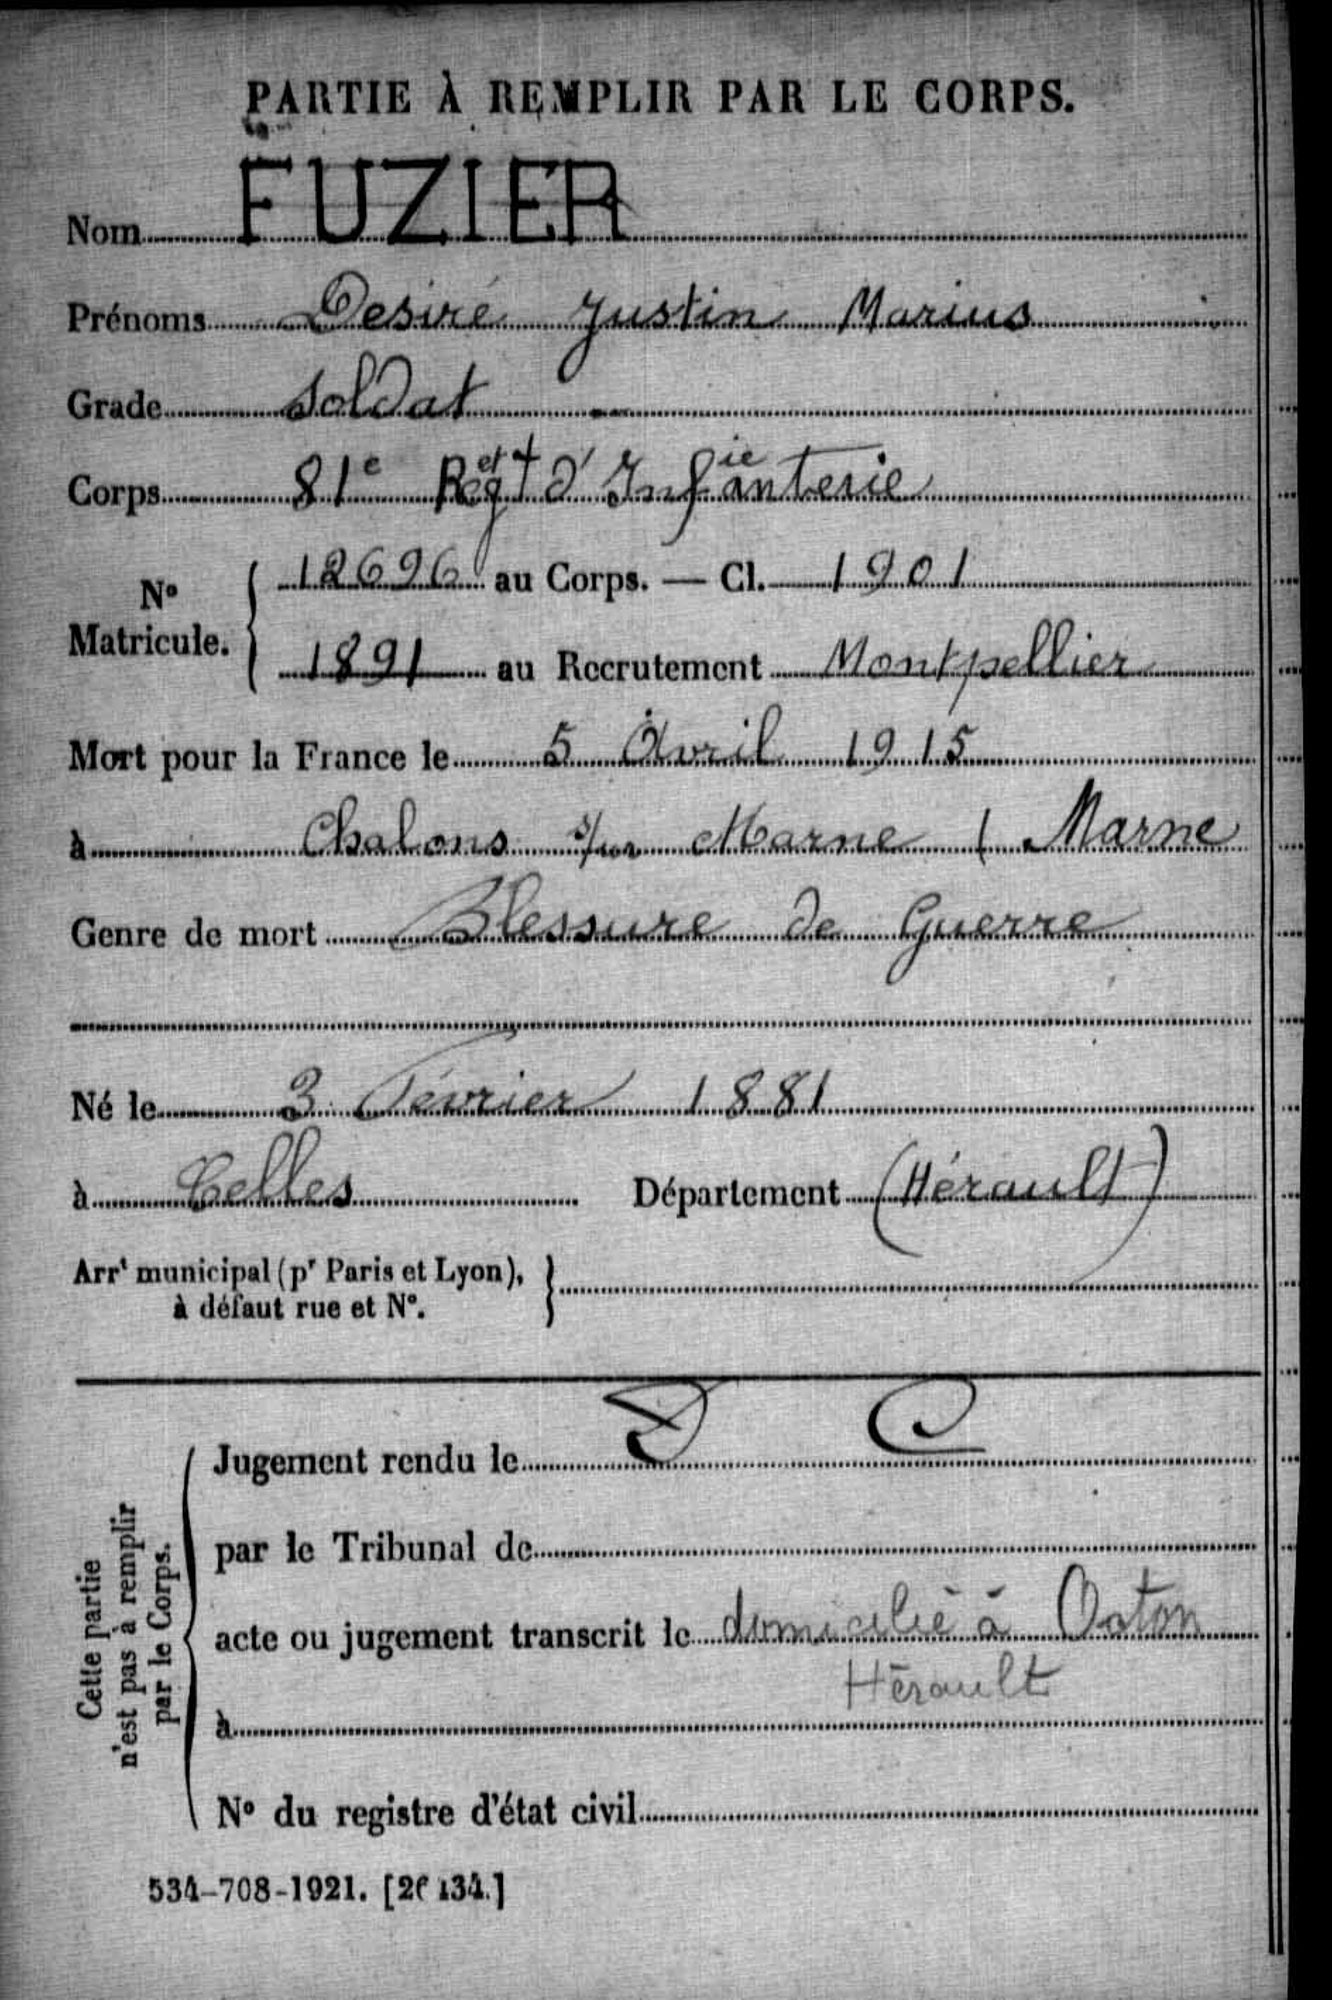 PARTIE À REMPLIR PAR LE CORPS.
Nom FUZIER
Prénoms Desiré Justin Marius
Grade Soldat
Corps 81e Régt d'Infanterie
No Matricule. 12696 au Corps. — Cl. 1901
1891 au Recrutement Montpellier
Mort pour la France le 5 Avril 1915
à Chalons s/ur Marne ( Marne
Genre de mort Blessure de Guerre
Né le 3 Février 1881
à Celles Département (Hérault)
Arrt municipal (pr Paris et Lyon),
à défaut rue et No.
D C
Jugement rendu le
par le Tribunal de
acte ou jugement transcrit le domicilié à
Hérault
à
No du registre d'état civil
Cette partie
n'est pas à remplir
par le Corps.
534-708-1921.